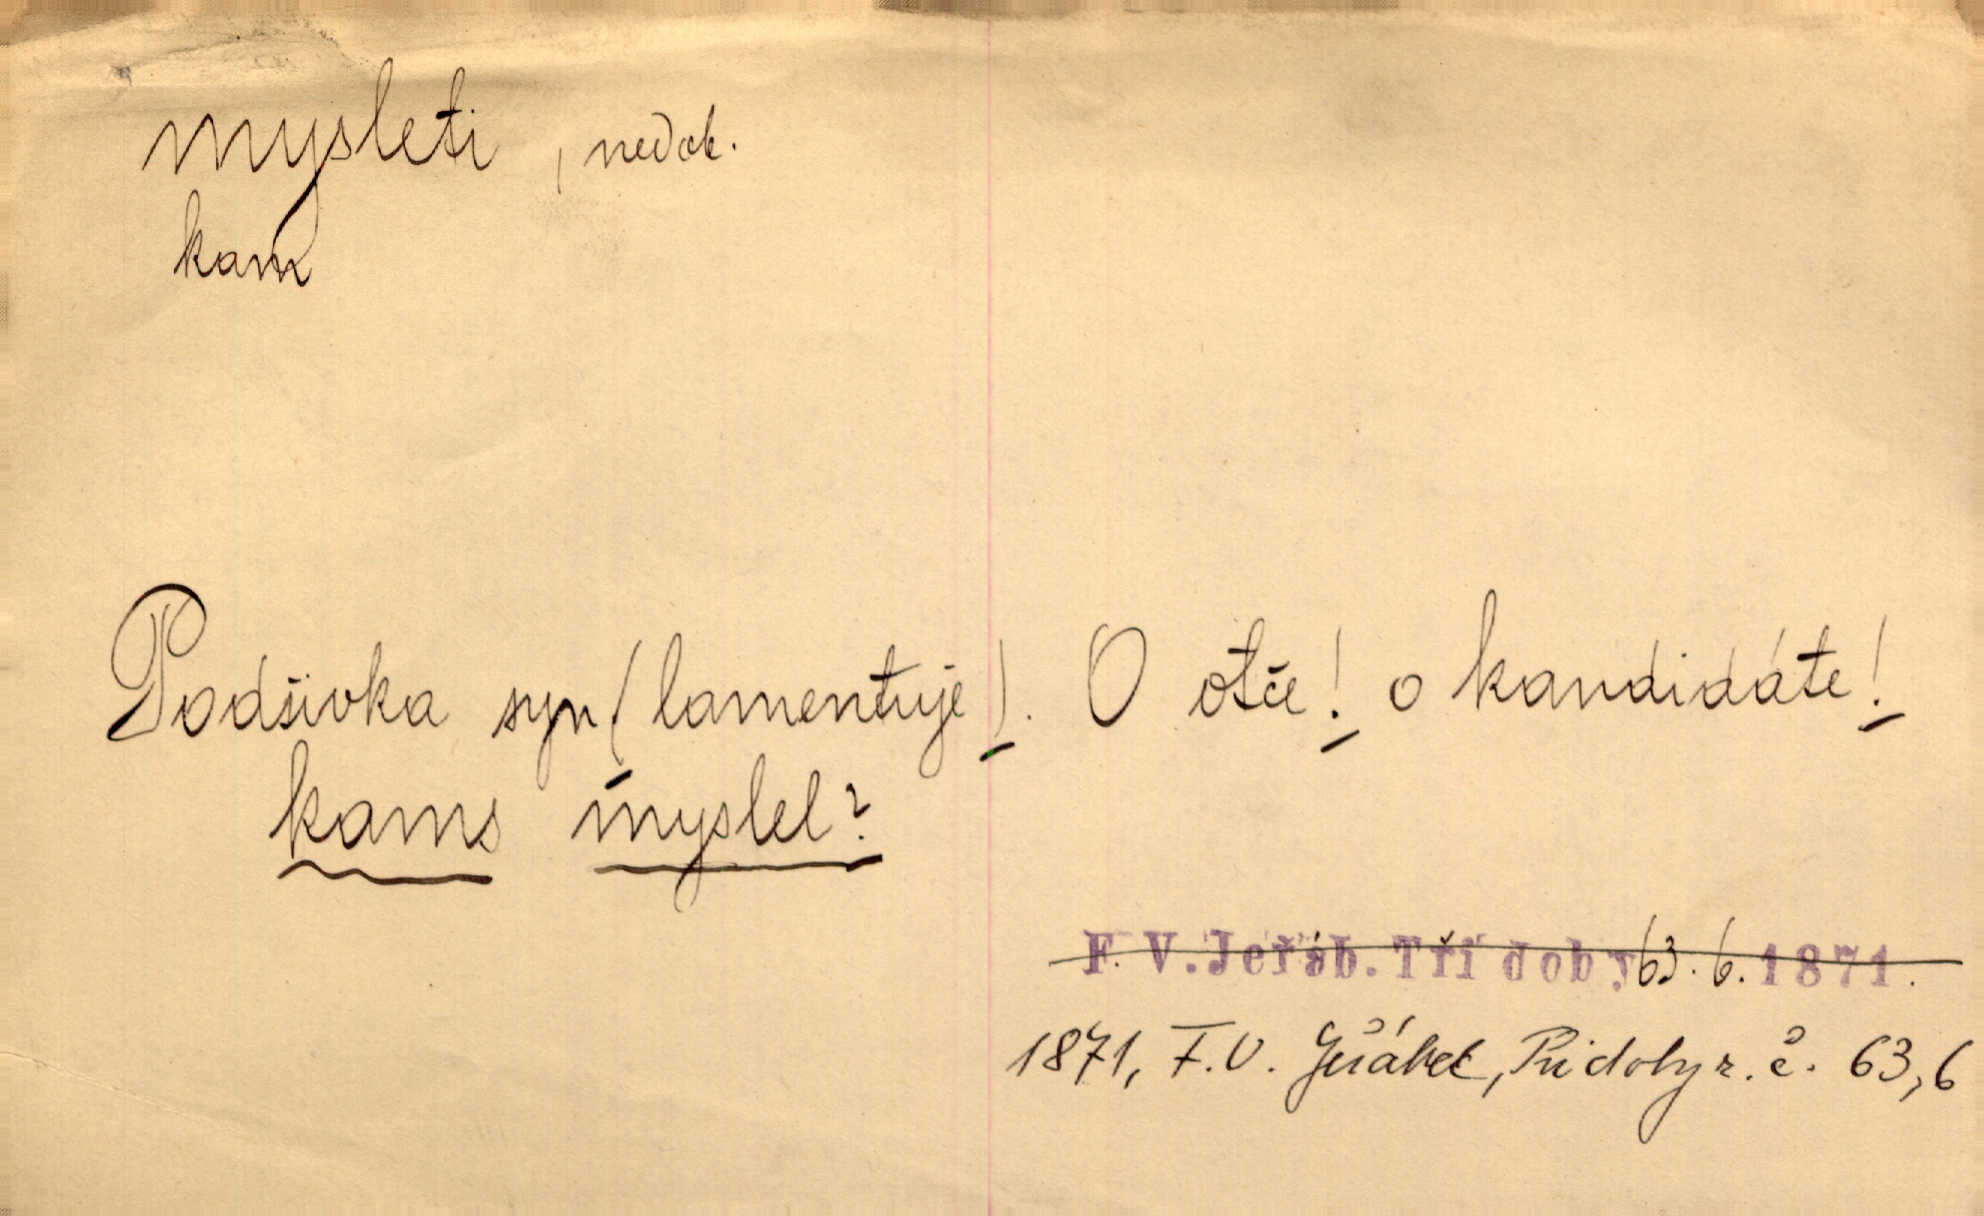 mysleti, nedok.
kam
Podšívka syn (lamentuje). O otče! o kandidáte!
kams myslel?
F. V. Jeřáb. Tři doby 63. 6. 1871.
1871, F. V. Jeřábek, Tři doby z. č. 63,6